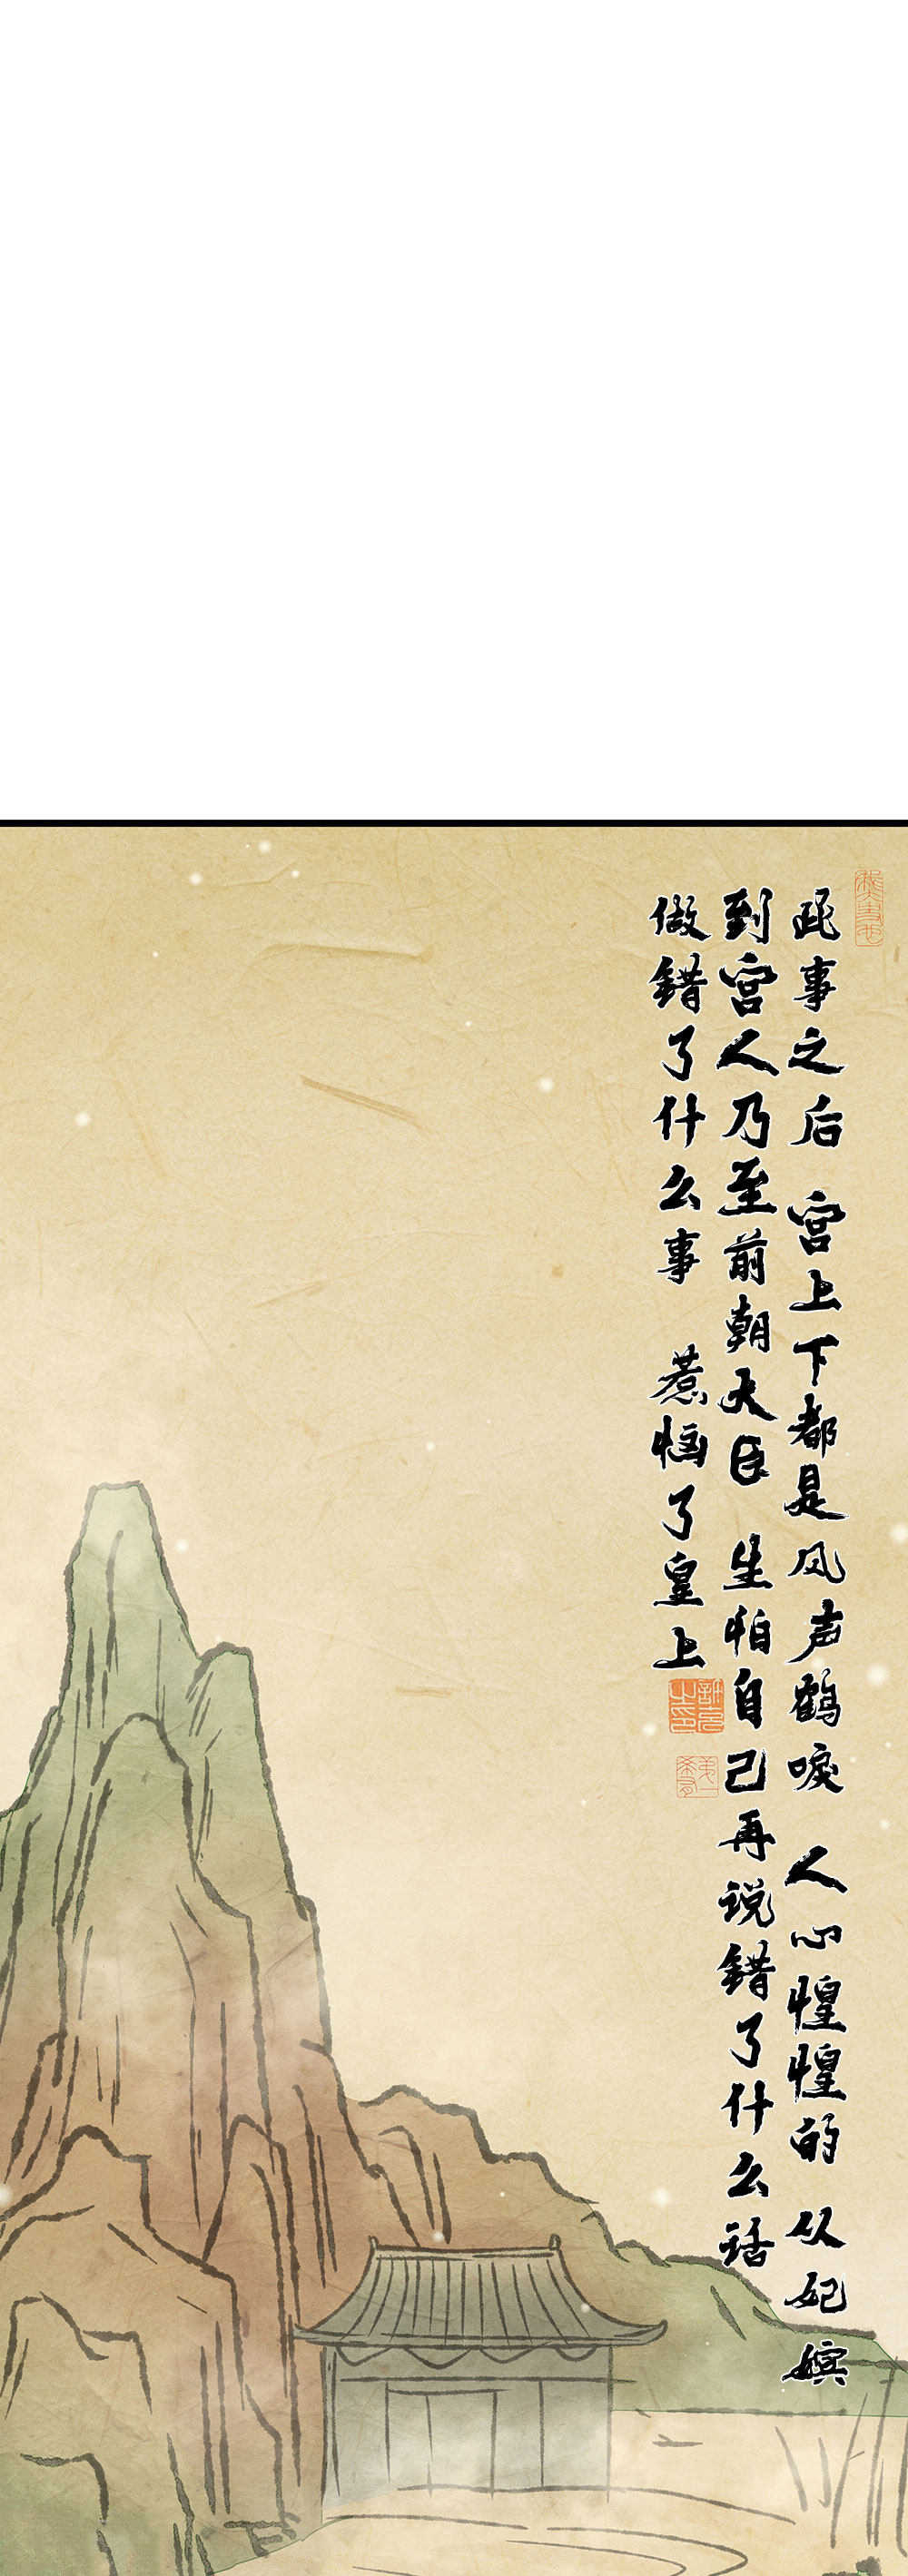 此事之后 宫上下都是风声鹤唳 人心惶惶的 从妃嫔
到宫人乃至前朝大臣 生怕自己再说错了什么话
做错了什么事 惹恼了皇上